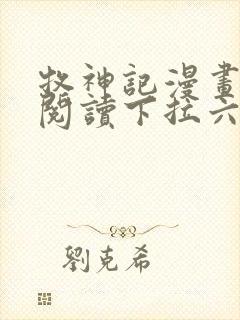 牧神記漫畫
閱讀下拉六
劉克希